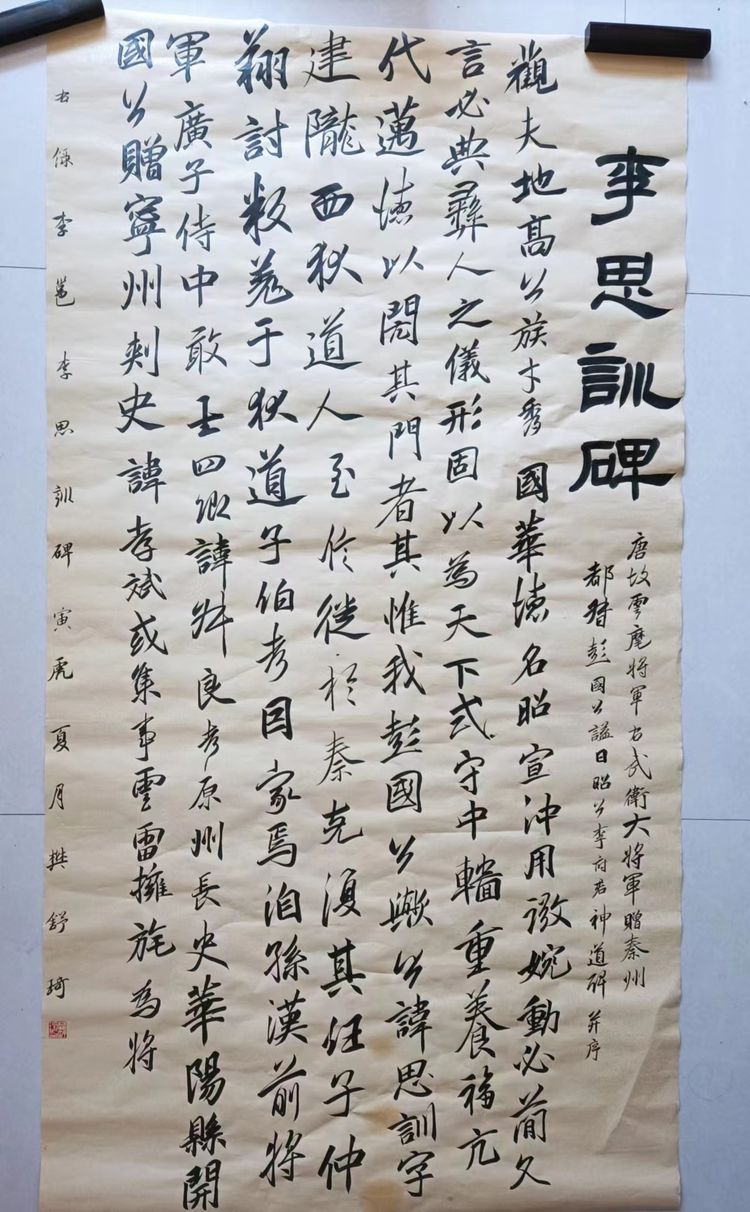 李思訓碑
唐故雲麾將軍右武衛大將軍贈秦州
都督彭國公謚曰昭公李府君神道碑并序
觀夫地高公族才秀國華德名昭宣沖用微婉動必簡久
言必典彝人之儀形固以為天下式守中轖重養福亢
代邁德以閱其門者其惟我彭國公歟公諱思訓字
建隴西狄道人至信徙於秦克復其任子仲
翔討叛羌于狄道子伯考因家焉洎孫漢前將
軍廣子侍中敢士四卿諱昇良考原州長史華陽縣開
國公贈寧州刺史諱孝斌或集事雲雷擁旄為將
右錄李邕李思訓碑寅虎夏月樊舒琦